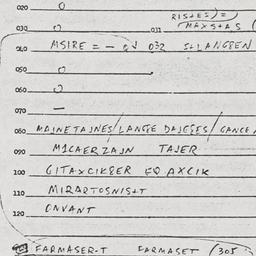 020 O
RISTES) =
030 O 031 MAXSTAS (
010 MSIRE = - 032 STLANGEN
050 O
060 O
070 —
080 MAJNETAJNES/LANGE DAJEGES/CANCE
090 MICAERZAJN TAJER
100 GITAXCIKBER EQ AXCIK
110 MIRARTOSNIST
120 CNVANT
FARMASER-T FARMASET (305